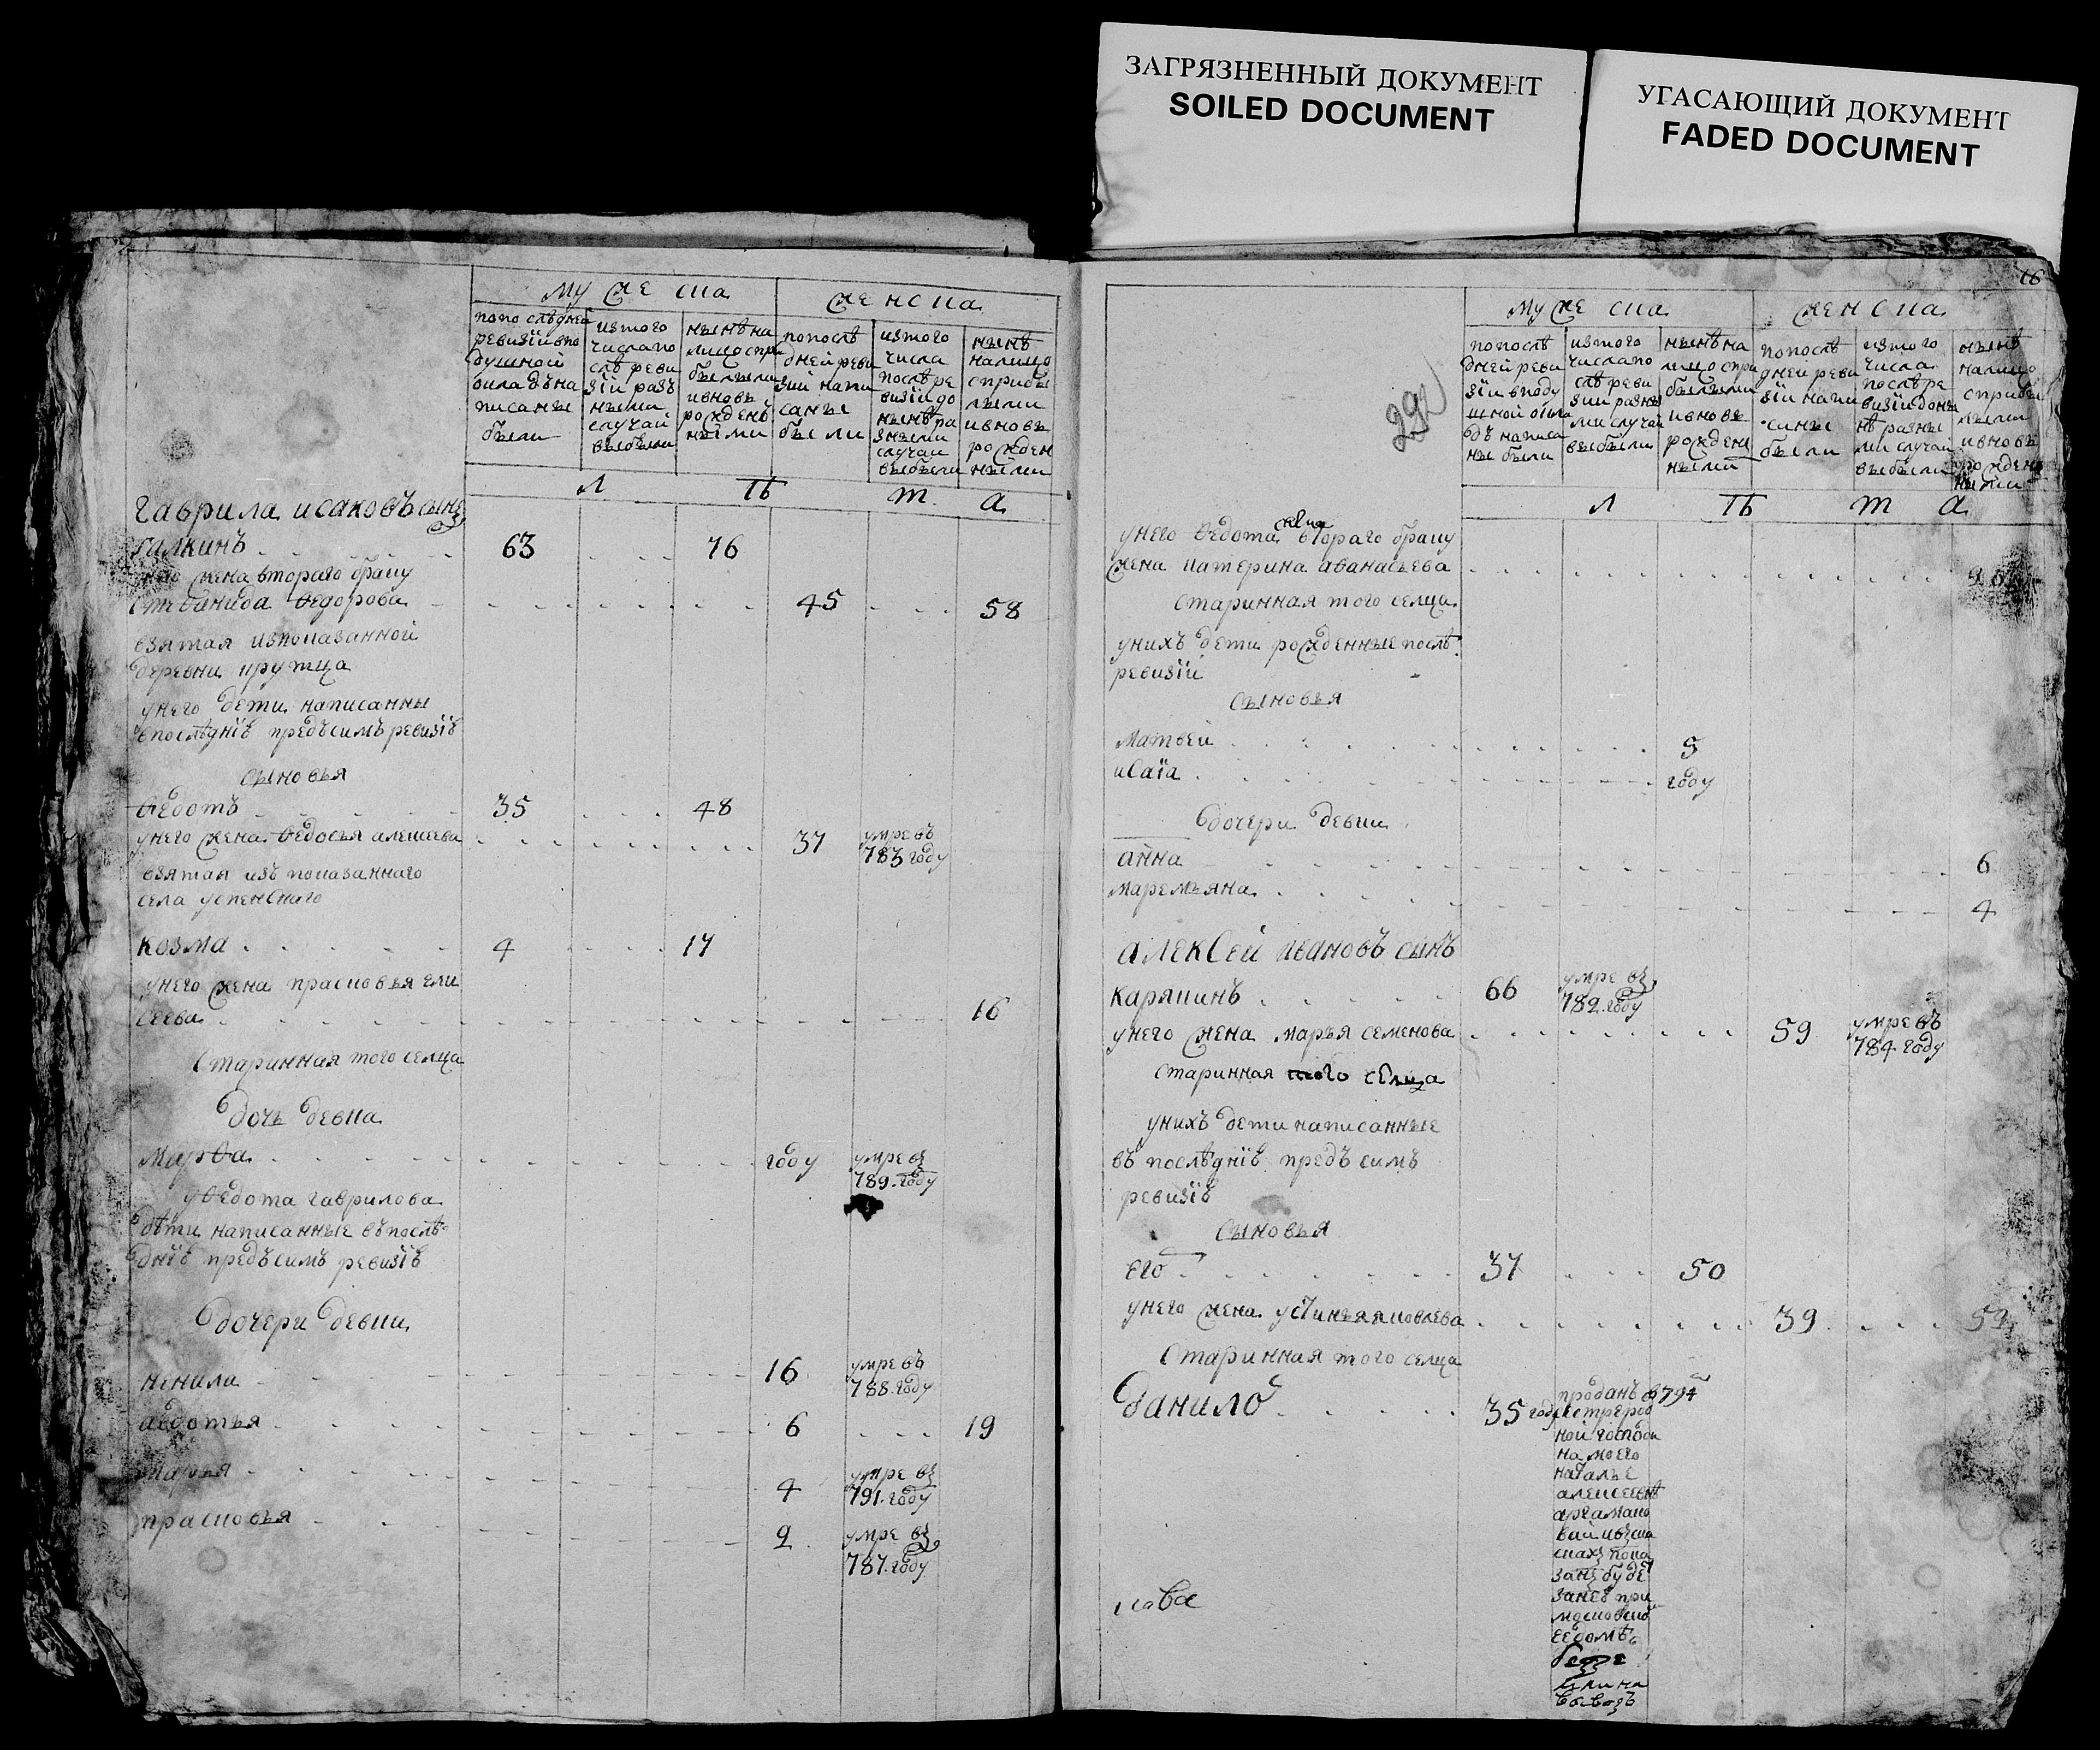 ЗАГРЯЗНЕННЫЙ ДОКУМЕНТ
SOILED DOCUMENT
УГАСАЮЩИЙ ДОКУМЕНТ
FADED DOCUMENT
муже ска
женска
попо слѣднеи
ревизїи впо
душной
окладъ на
писаны
были
изтого
числа по
слѣ реви
зїи разъ
ными
случаи
выбыли
нынѣ на
лицо спри
былыми
ивновь
рожденъ
ными
попослѣ
дней реви
зии напи
саны
были
изтого
числа
послѣ ре
визїи до
нынѣ ра
зными
случаи
выбыли
нынѣ
налицо
сприбы
лыми
ивновь
рожден
ными
л ѣ т а
Гаврила исаковъ сынъ
галкинъ 63 76
у него жена втораго браку
степанида Ѳедорова 45 58
взятая изпоказанной
деревни крутца
унего дети написанны
впослѣднїѣ предъсимъ ревизїѣ
сыновья
Ѳедотъ 35 48
унего жена Ѳедосья алексеева 37 умре въ 783 году
взятая изъ показаннаго
села успенскаго
козма 4 17
унего жена прасковья ели
сеева 16
старинная того селца
дочь девка
марѳа году умре въ 789 году
уѲедота гаврилова
дѣти написанные въпослѣ
днїѣ предъсимъ ревизїѣ
дочери девки
ненила 16 умре въ 788 году
авдотья 6 19
марья 4 умре въ 791 году
прасковья 2 умре въ 787 году
16
муже ска
женска
попослѣ
дней реви
зїи вподу
шной окла
дъ написа
ны были
изтого
числа по
слѣ реви
зии разны
ми случаи
выбыли
нынѣ на
лицо спри
былыми
ивновь
рожден
ными
попослѣ
дней реви
зїи напи
саны
были
изтого
числа
послѣ ре
визїи доны
нѣ разны
ми случаи
выбыли
нынѣ
налицо
сприбы
лыми
ивновь
рожден
ными
л ѣ т а
унего Ѳедота втораго браку
жена катерина аѳанасьева
старинная того селца
унихъ дети рожденные послѣ
ревизїи
сыновья
матвеи 5
исаїа году
дочери девки
анна 6
маремьяна 4
алексей ивановъ сынъ
карякинъ 66 умре въ 782 году
унего жена марья семенова 59 умре въ 784 году
старинная того селца
унихъ дети написанные
въ послѣднїѣ предъ симъ
ревизїѣ
сыновья
его 37 50
унего жена устинья яковлева 39 52
старинная того селца
данило 35 проданъ в 794
году сестре род
ной господи
на моего
наталье
алексеевнѣ